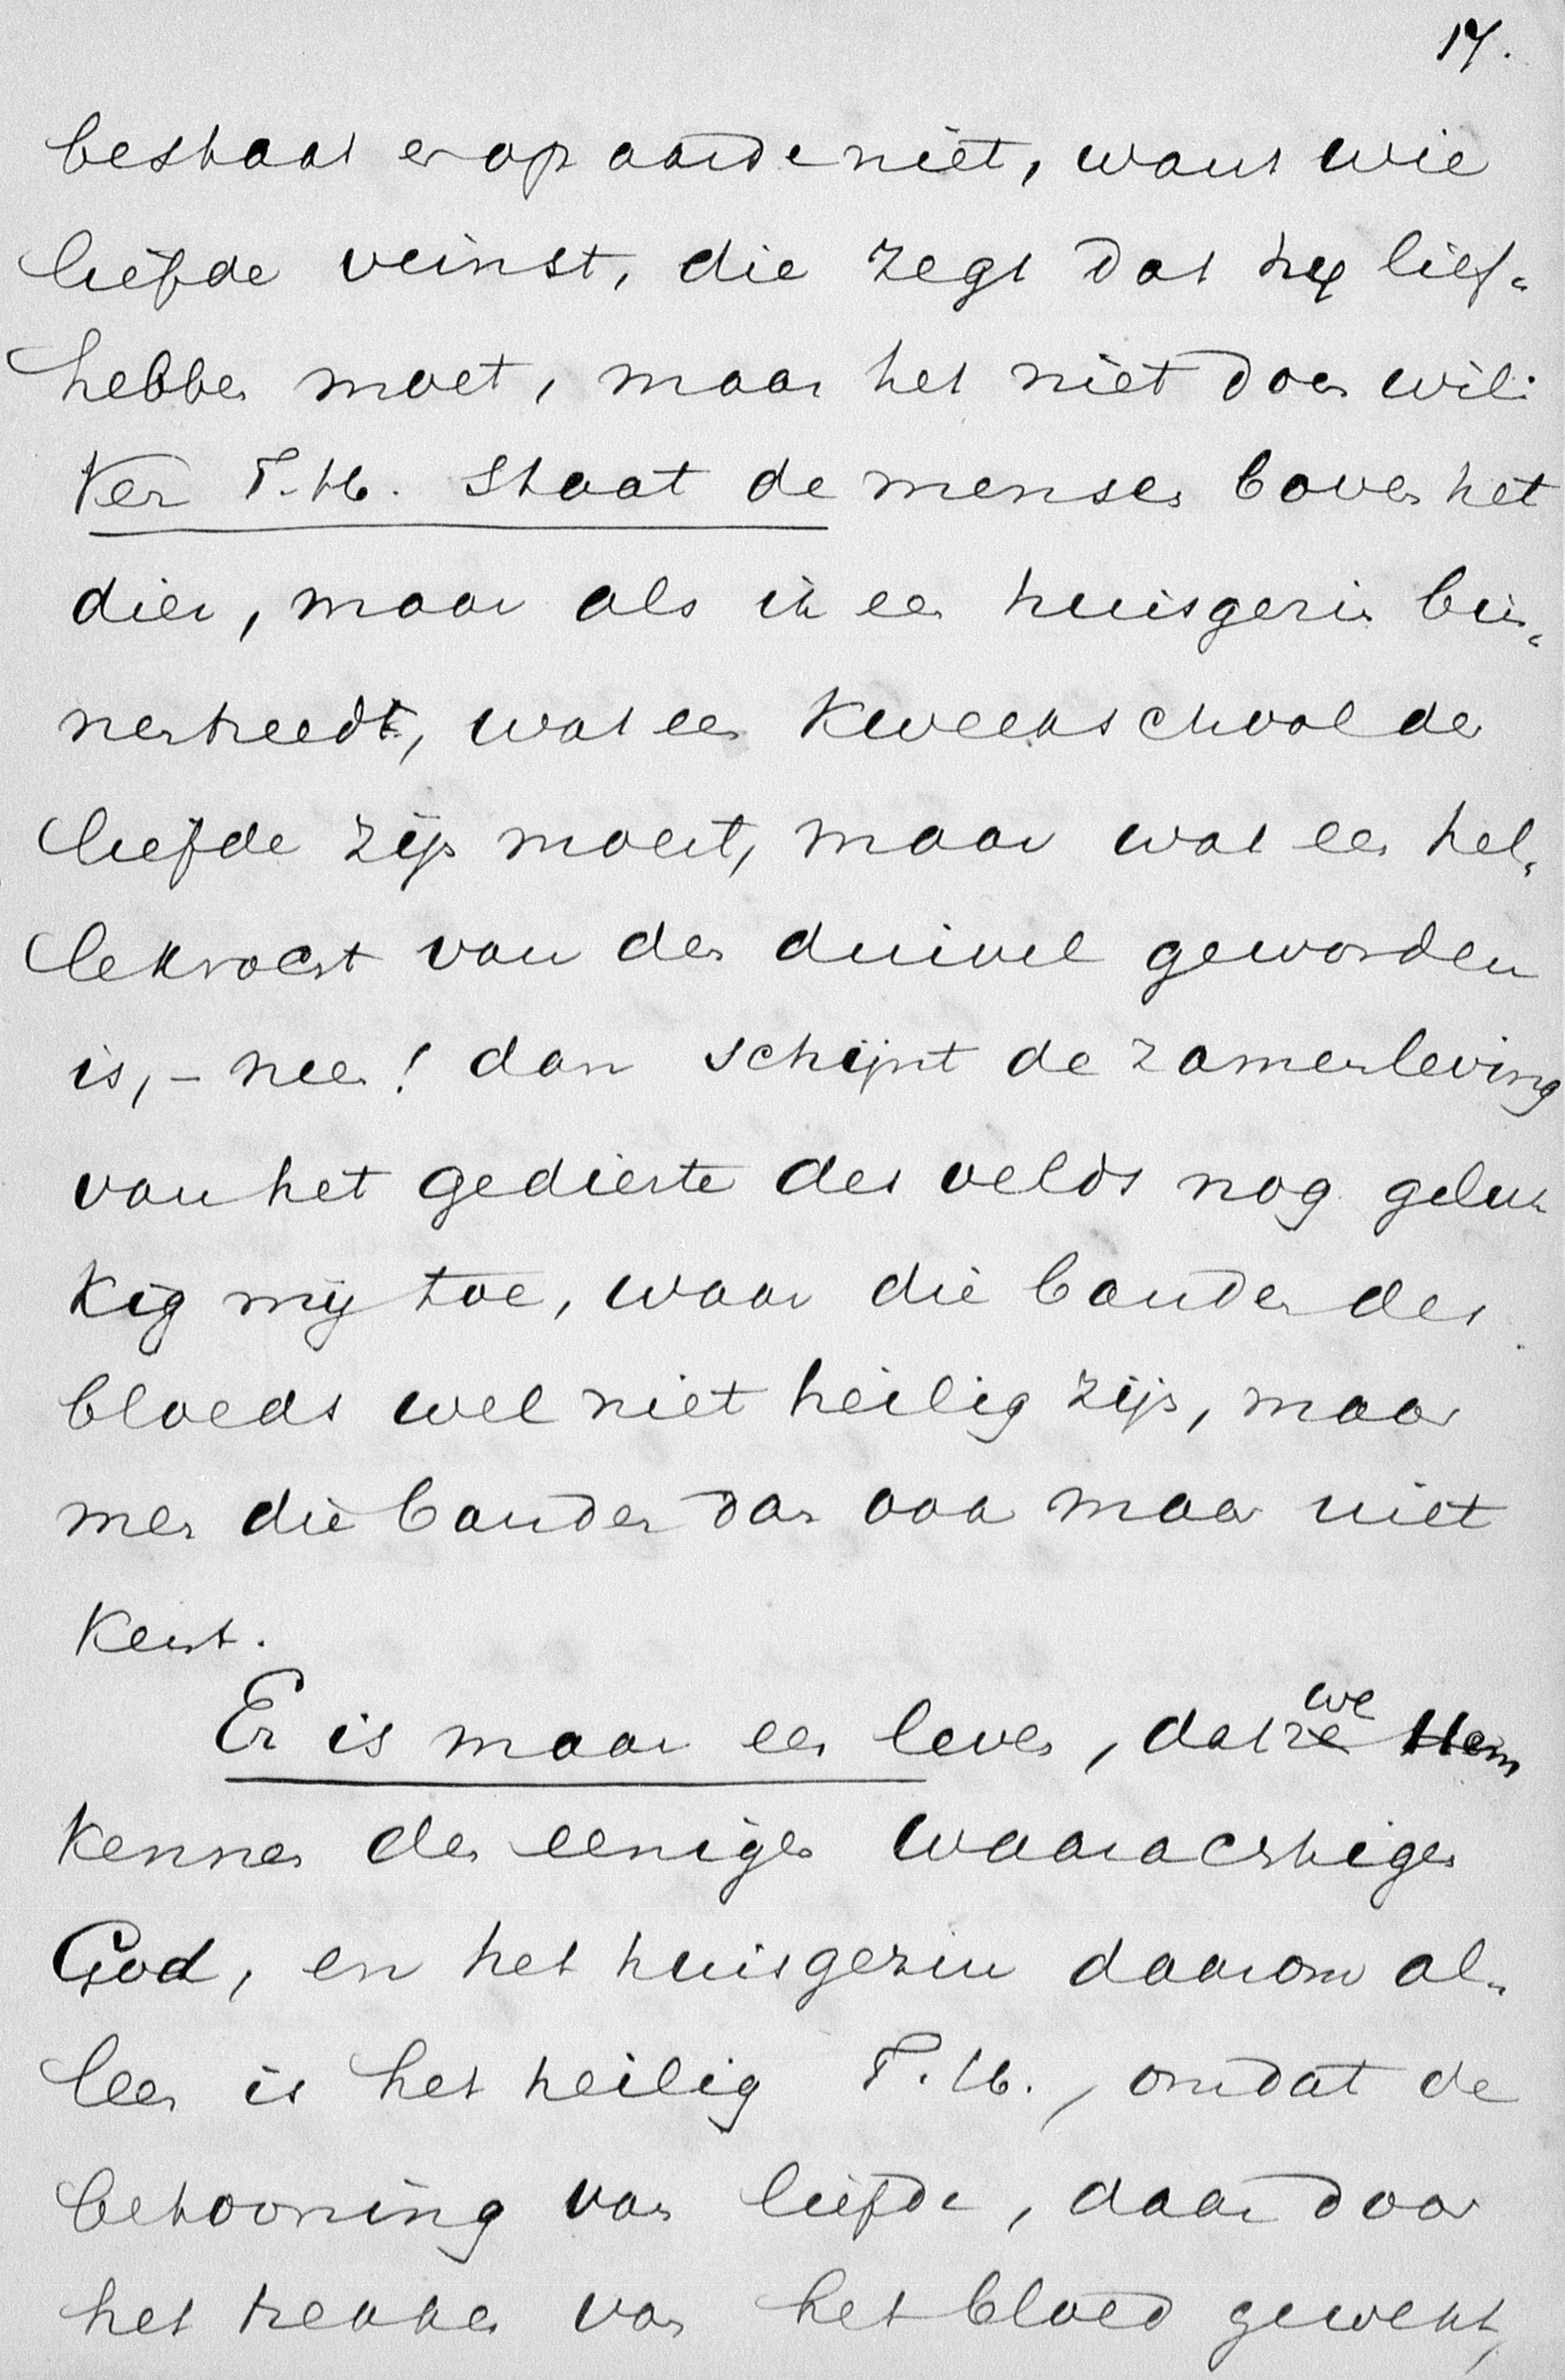 17.
bestaat er op aarde niet, want wie
liefde veinst, die zegt dat hij lief-
hebben moet, maar het niet doen wil.
Ver T.H. staat de mensen boven het
dier, maar als ik een huisgezin bin-
nentreedt, wat een kweekschool der
liefde zijn moest, maar wat een hel-
lekrocht van den duivel geworden
is, - neen! dan schijnt de zamenleving
van het gedierte des velds nog geluk
kig mij toe, waar die banden des
bloeds wel niet heilig zijn, maar
men die banden dan ook maar niet
kent.
Er is maar een leven, dat ze we Hem
kennen den eenigen waarachtigen
God, en het huisgezin daarom al-
leen is het heilig T.H., omdat de
betooning van liefde, daar door
het trekken van het bloed gewekt,